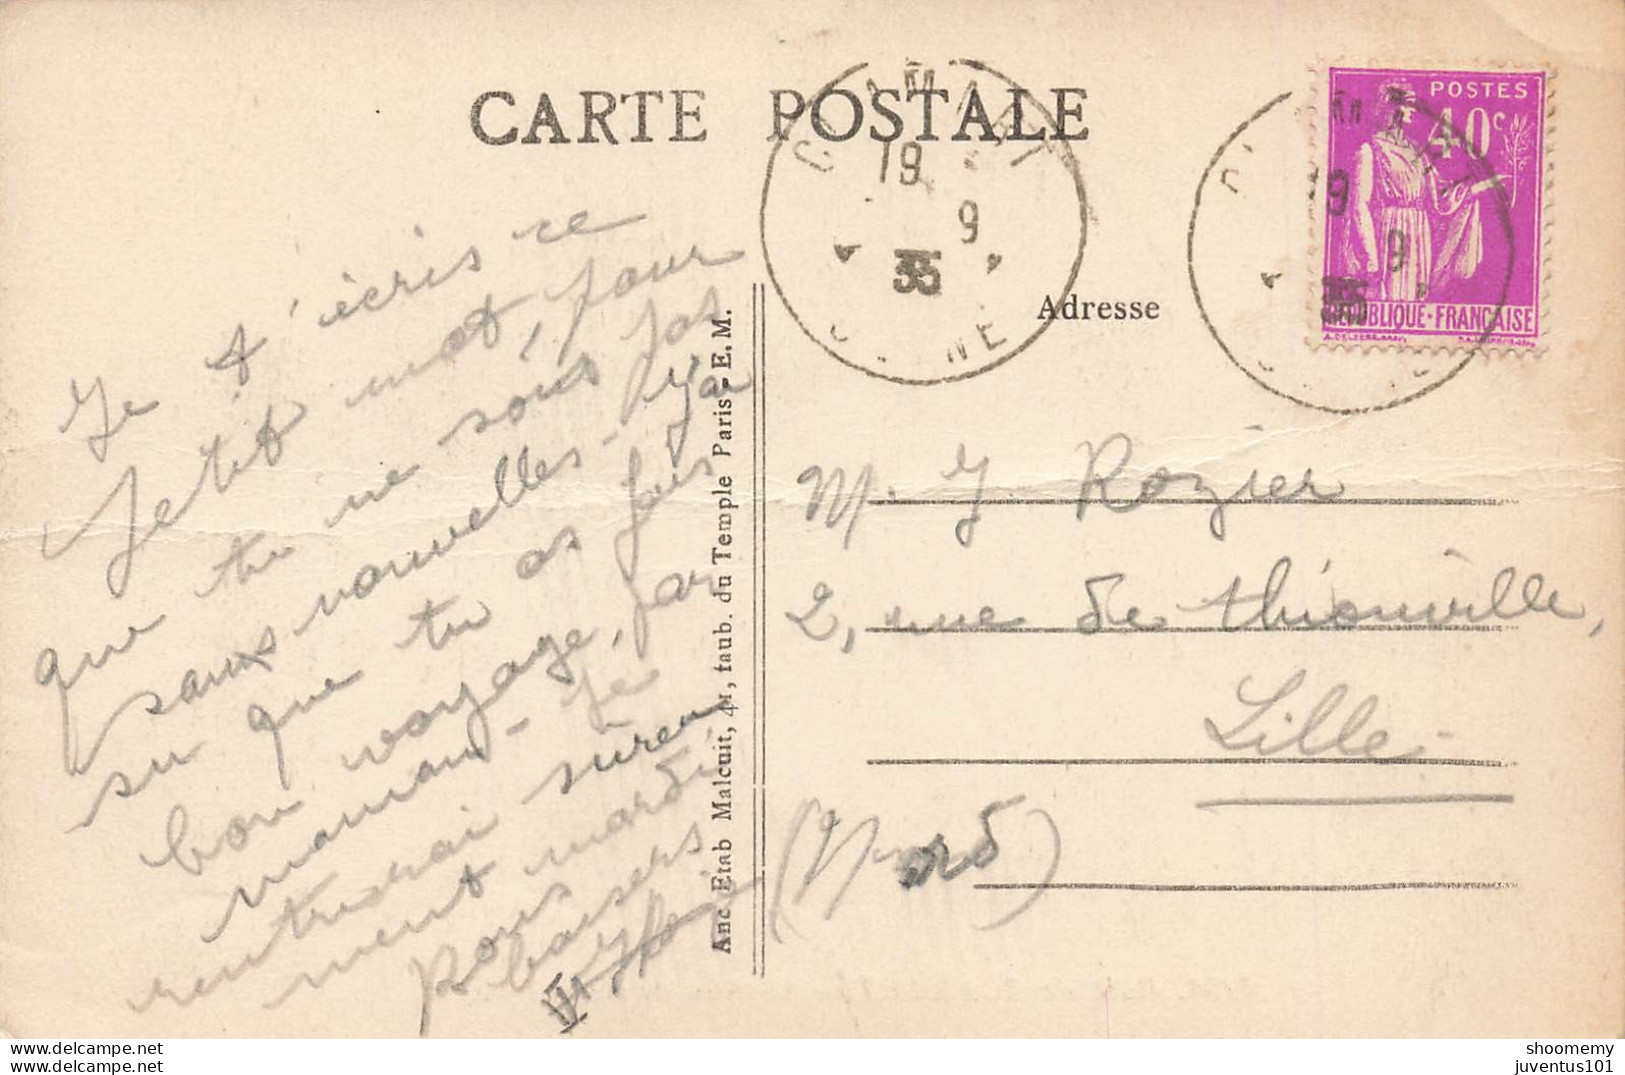 CARTE POSTALE
CLAMART
19 9
35
SEINE
POSTES
40c
RÉPUBLIQUE·FRANÇAISE
Adresse
Je t'écris ce
petit mot, pour
que tu ne sois pas
sans nouvelles - J'ai
su que tu as fais
bon voyage, par
maman - Je
rentrerai sûre
ment mardi
Bons baisers
Anc Etab Malcuit, 41, faub. du Temple Paris - E. M.
M. J. Rozier
2, rue de Thionville,
Lille
(Nord)
shoomemy
juventus101